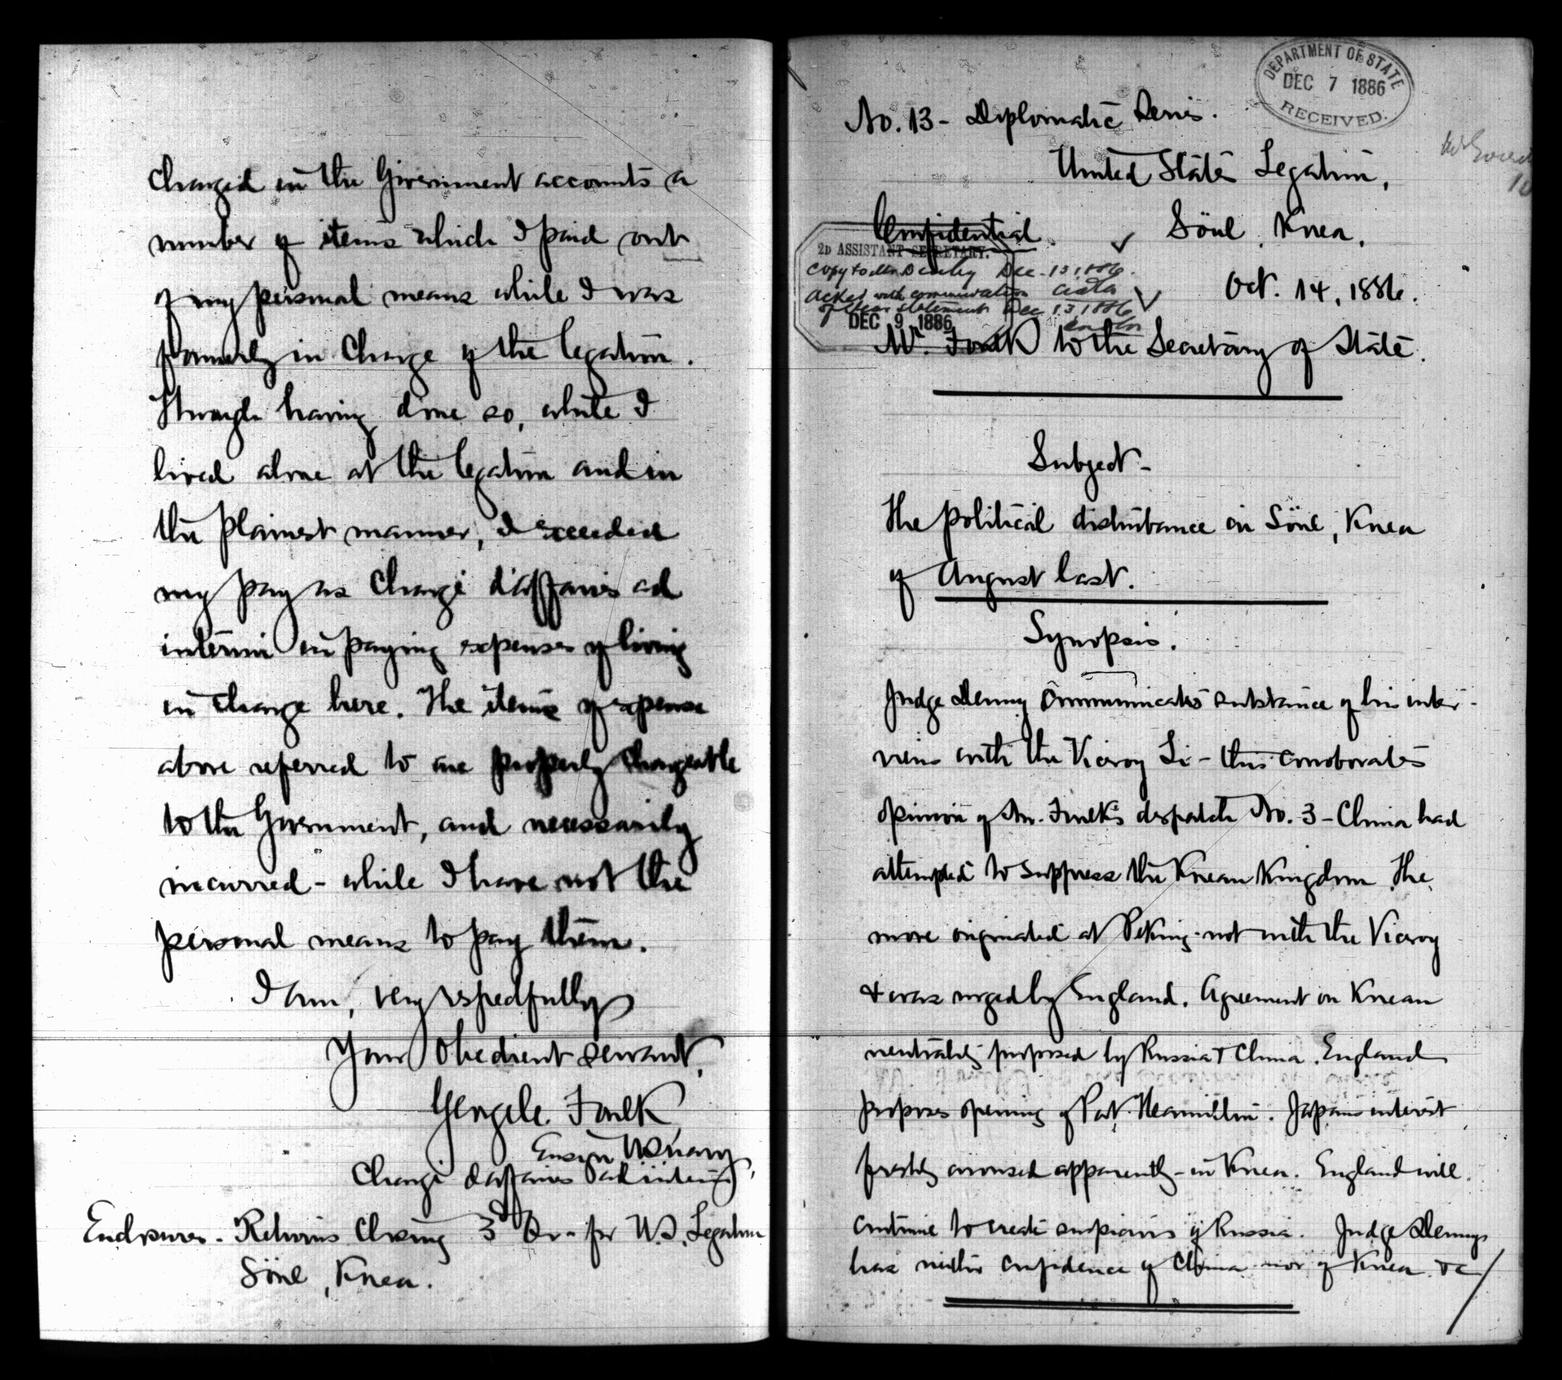 charged in the Government accounts a
number of items which I paid out
of my personal means while I was
formerly in Charge of the legation.
Through having done so, while I
lived alone at the legation and in
the plainest manner, I exceeded
my pay as Chargé d'affaires ad
interim in paying expenses of living
in charge here. The items of expense
above referred to are properly chargeable
to the Government, and necessarily
incurred - while I have not the
personal means to pay them.
I am, very respectfully
Your obedient servant,
George C. Foulk
Ensign U.S. Navy,
Chargé d'affaires ad interim
Endosures - Returns Closing 3d Qr - for U.S. Legation
Söul, Korea.
No. 13 - Diplomatic Series.
DEPARTMENT OF STATE
DEC 7 1886
RECEIVED.
United States Legation,
Confidential
Söul, Korea,
2D ASSISTANT SECRETARY.
Copy to Mr Denby Dec. 13, 1886.
Oct. 14, 1886.
Acked with commendation
of clear statement Dec 13, 1886
DEC 9 1886
Mr. Foulk to the Secretary of State.
Subject -
The political disturbance in Söul, Korea
of August last.
Synopsis.
Judge Denny Communicates substance of his inter-
view with the Viceroy Li - this corroborates
opinion of Mr. Foulk's despatch No. 3 - China had
attempted to suppress the Korean Kingdom. The
move originated at Peking - not with the Viceroy
& was urged by England. Agreement on Korean
neutrality proposed by Russia & China. England
proposes opening of Port Hamilton. Japan's interest
freshly aroused apparently - in Korea. England will
continue to create suspicions of Russia. Judge Denny
has neither confidence of China nor of Korea &c